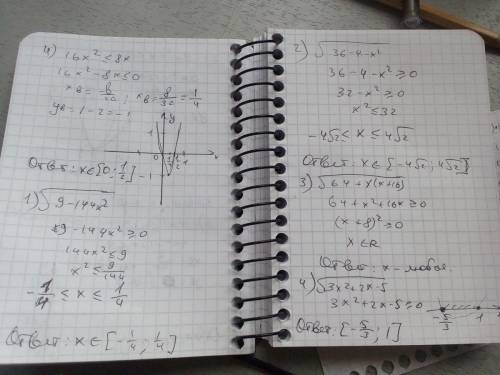 4) 16x² ≤ 8x
16x² - 8x ≤ 0
xв = в/2a ; xв = 8/32 = 1/4
yв = 1 - 2 = -1
y
1
0
1/4
1/2
1
x
-1
Ответ: x∈[0; 1/2]
1) √9-144x²
9-144x² ≥ 0
144x² ≤ 9
x² ≤ 9/144
-1/4 ≤ x ≤ 1/4
Ответ: x∈[-1/4; 1/4]
2) √36-4-x²
36-4-x² ≥ 0
32-x² ≥ 0
x² ≤ 32
-4√2 ≤ x ≤ 4√2
Ответ: x∈[-4√2; 4√2]
3) √64+x(x+16)
64+x²+16x ≥ 0
(x+8)² ≥ 0
x∈R
Ответ: x - любое.
4) √3x²+2x-5
3x²+2x-5 ≥ 0
-5/3 1 x
Ответ: [-5/3; 1]